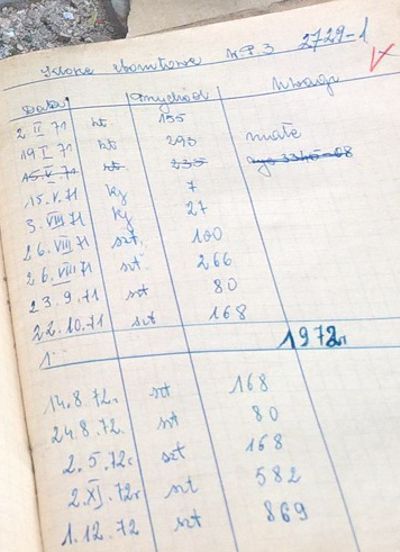 N.P.3 2729-1
Data Przychód Uwagi
2 II 71 szt 155
19 I 71 szt 293 małe
15.V.71 szt. 235
15.V.71 kg 7
3.VIII 71 kg 27
26.VIII 71 szt. 100
26.VIII.71 szt. 266
23.9.71 szt 80
22.10.71 szt 168
1972r
14.8.72r. szt 168
24.8.72. szt 80
2.5.72r szt 168
2.XI.72r szt 582
1.12.72 szt 869